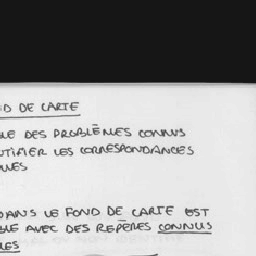 D DE CARTE
LE DES PROBLÈMES CONNUS
NTIFIER LES CORRESPONDANCES
UES
DANS LE FOND DE CARTE EST
BLE AVEC DES REPÈRES CONNUS
LES